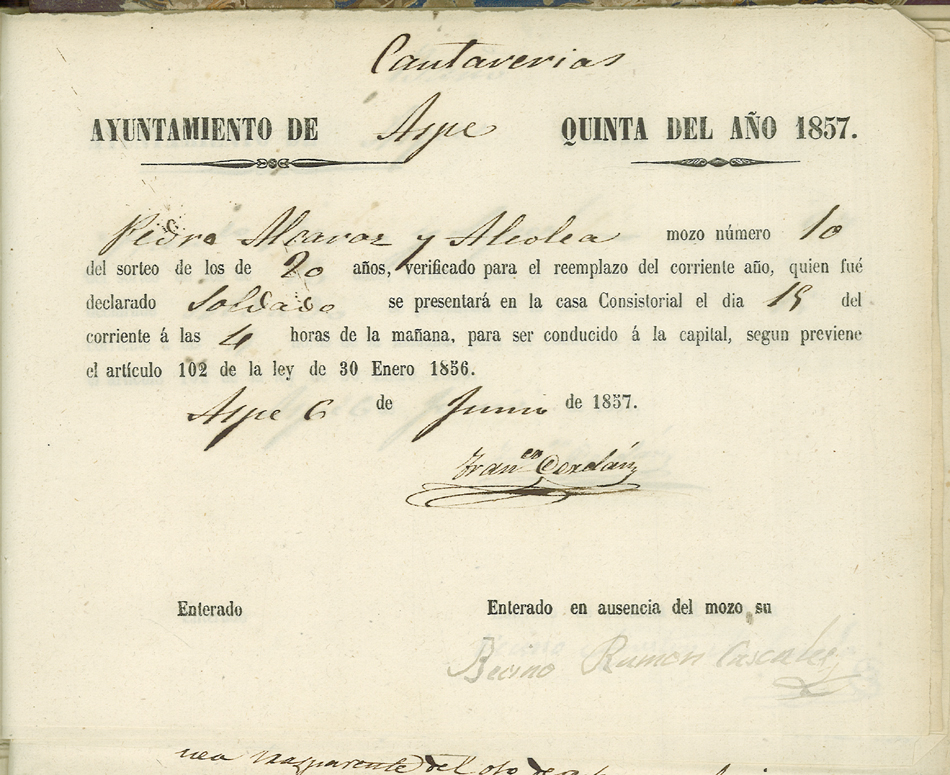 Cantarerias
AYUNTAMIENTO DE Aspe QUINTA DEL AÑO 1857.
Pedro Alcaraz y Alcolea mozo número 10
del sorteo de los de 20 años, verificado para el reemplazo del corriente año, quien fué
declarado Soldado se presentará en la casa Consistorial el dia 15 del
corriente á las 4 horas de la mañana, para ser conducido á la capital, segun previene
el artículo 102 de la ley de 30 Enero 1856.
Aspe 6 de Junio de 1857.
Fran.co Cerdán
Enterado Enterado en ausencia del mozo su
Becino Ramon Cascales
del